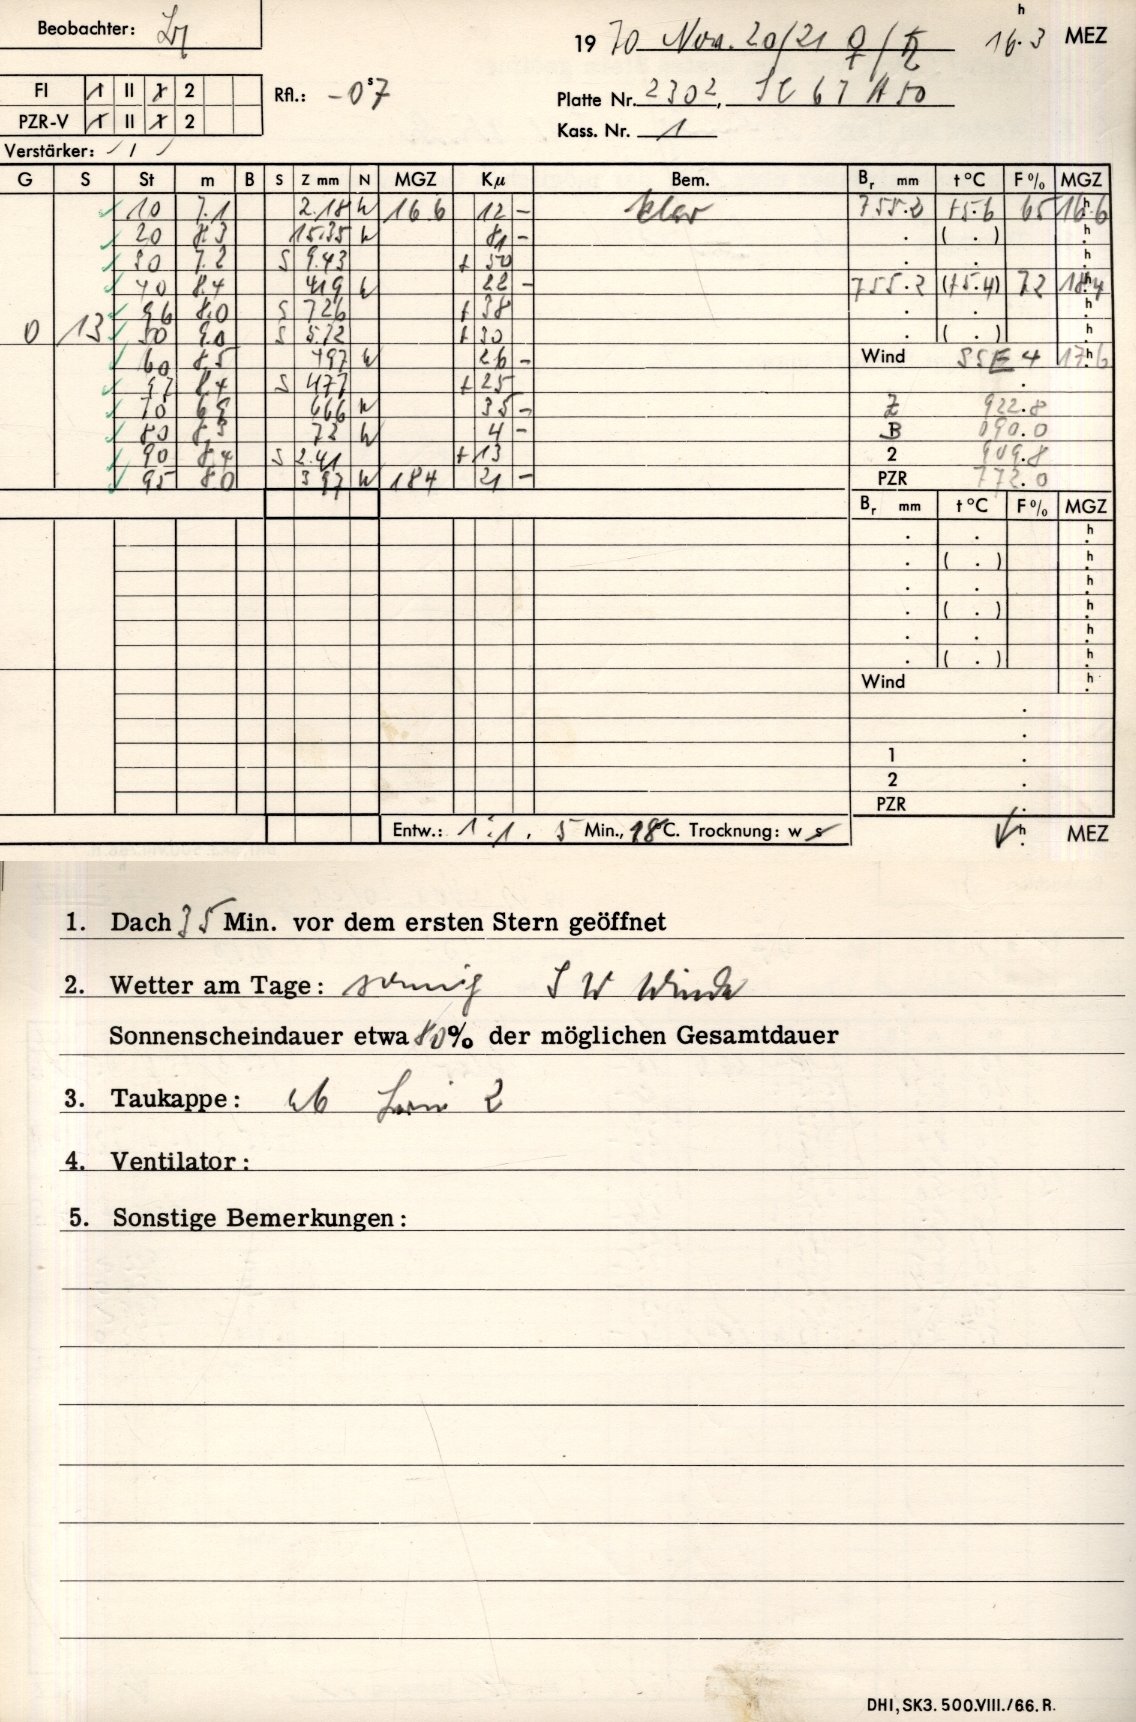 Beobachter:
h
19 70 Nov. 20/21 ♀/♄ 16.3 MEZ
FI 1 II 1 2
Rfl.: -0ˢ7
Platte Nr. 2302,
PZR-V 1 II 1 2
Kass. Nr. 1
Verstärker: / 1 /
G S St m B S Z mm N MGZ Kμ Bem. Bᵣ mm t °C F % MGZ
10 7.1 2.18 N 16 6 12 - klar 755.2 +5.6 65 16.6
20 8.3 15.35 N 81 - . ( . ) h
30 7.2 S 9.43 + 50 . . h
40 8.4 419 N 22 - 755.2 (+5.4) 72 18.4
96 8.0 S 726 + 38 . . h
0 13 50 9.0 S 5.72 + 30 . ( . ) h
60 8.5 497 N 26 - Wind SSE 4 17.6
97 8.4 S 477 + 25 .
70 6.9 666 N 35 - Z 922.8
80 8.3 72 N 4 - B 090.0
90 8.4 S 2.41 + 13 2 909.8
95 8.0 3 97 N 184 21 - PZR 772.0
Bᵣ mm t °C F % MGZ
. . h
. ( . ) h
. . h
. ( . ) h
. . h
. ( . ) h
Wind h
.
.
1 .
2 .
PZR .
Entw.: 1:1, 5 Min., 18°C. Trocknung: w s h MEZ
1. Dach 35 Min. vor dem ersten Stern geöffnet
2. Wetter am Tage: sonnig SW Winde
Sonnenscheindauer etwa 80% der möglichen Gesamtdauer
3. Taukappe: ab 2
4. Ventilator:
5. Sonstige Bemerkungen:
DHI, SK3. 500.VIII./66. R.